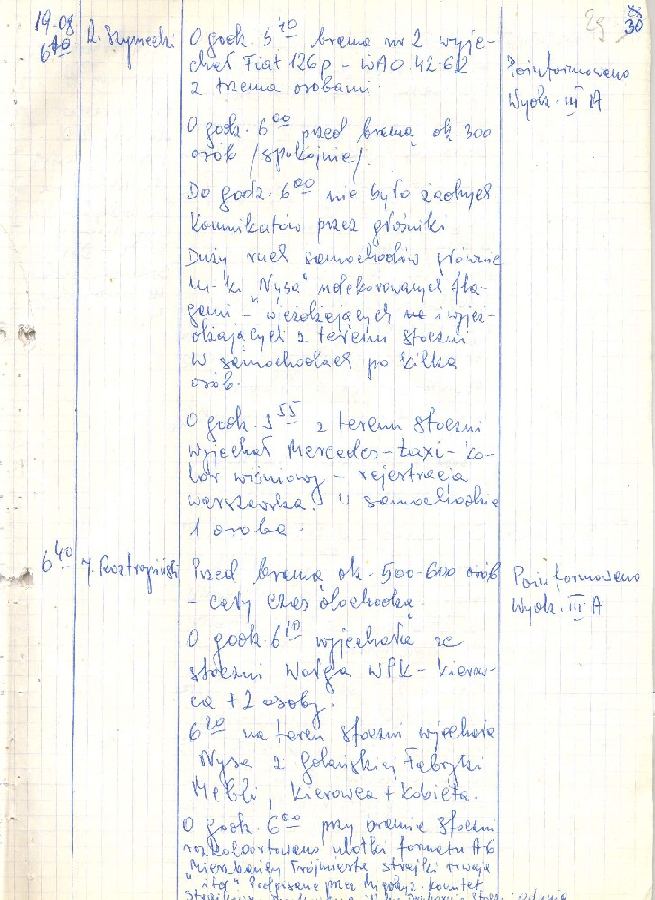 19.08
30
6 10
R. Szymecki
O godz. 5 40 brama nr 2 wyje-
chał Fiat 126p - WAO 42-62
z trzema osobami.
Poinformowano
Wydz. III A
O godz. 6 00 przed bramą ok 300
osób /spokojnie/.
Do godz. 6 00 nie było żadnych
Komunikatów przez głośniki
Duży ruch samochodów głównie
m-ki "Nysa" udekorowanych fla-
gami - wjeżdżających i wyjeż-
dżających z terenu stoczni
W samochodach po kilka
osób.
O godz. 5 55 z terenu stoczni
wyjechał Mercedes-taxi-ko-
lor wiśniowy - rejestracja
warszawska. W samochodzie
1 osoba.
6 40
Przed bramą ok. 500-600 osób
- cały czas dochodzą.
Poinformowano
Wydz. III A
O godz. 6 10 wyjechała ze
stoczni Wołga WPK - kierow-
ca + 2 osoby.
6 20 na teren stoczni wjechała
Nysa z Gdańskiej Fabryki
Mebli, Kierowca + Kobieta.
O godz. 6 00 przy bramie stoczni
rozkolportowano ulotki formatu A-6
"Mieszkańcy Trójmiasta strajki trwają
Podpisane przez Międzyz. Komitet